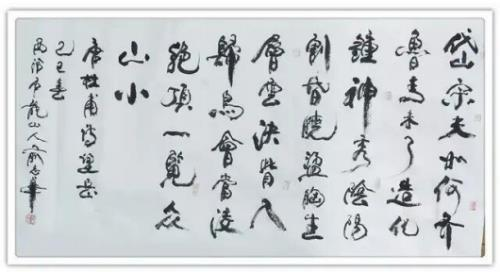 岱宗夫如何齐
魯青未了造化
鍾神秀陰陽
割昏曉盪胸生
層雲決眥入
歸鳥會當凌
絶頂一覽众
山小
唐杜甫詩望岳
乙巳春
龍山人